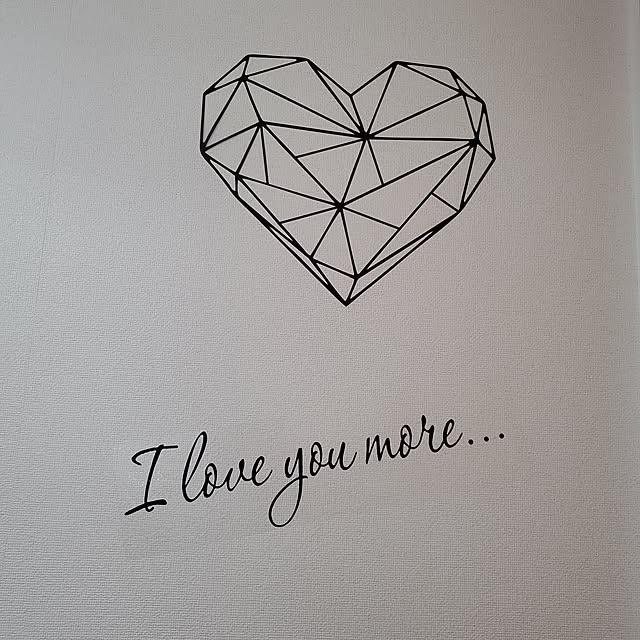 I love you more...